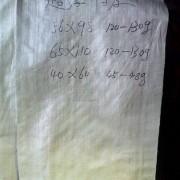 56×98 120-130g
65×110 120-130g
40×60 45-48g